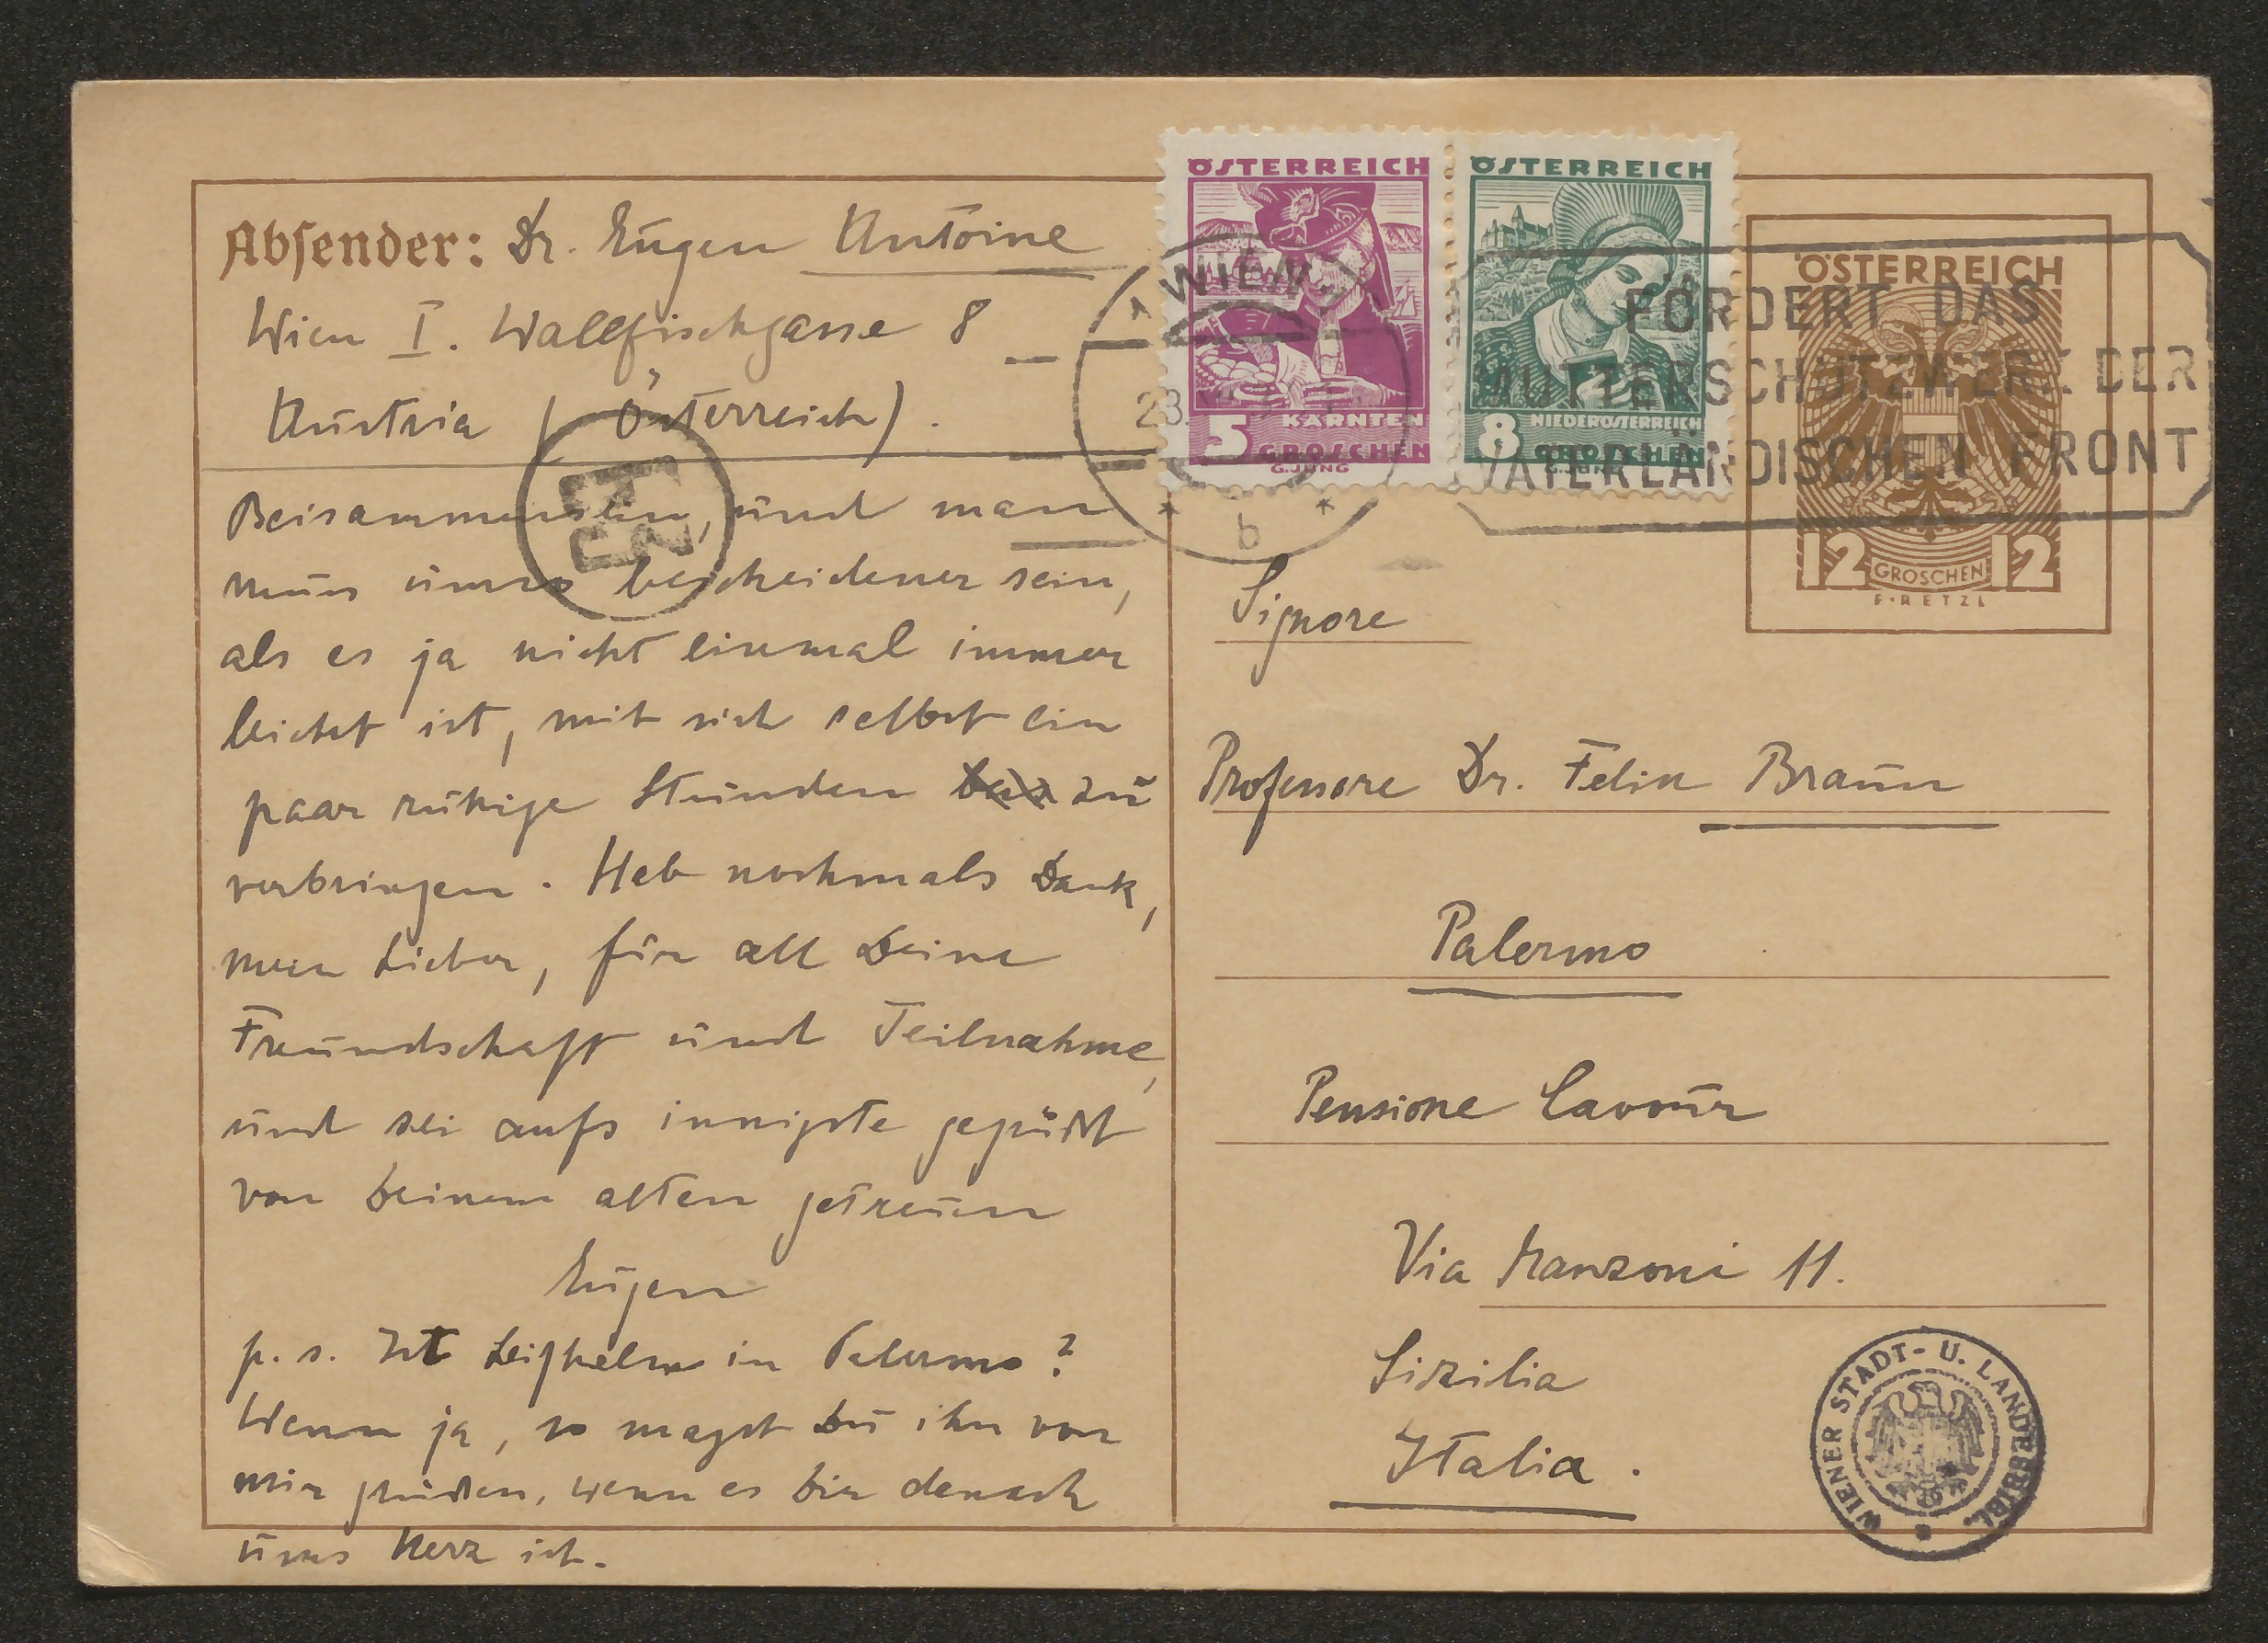 Absender: Dr. Eugen Antoine
Wien I. Wallfischgasse 8
Austria (Österreich).
Beisammensein, und man
muss umso bescheidener sein,
als es ja nicht einmal immer
leicht ist, mit sich selbst ein
paar ruhige Stunden zu
verbringen. Hab nochmals Dank,
mein Lieber, für all Deine
Freundschaft und Teilnahme,
und sei aufs innigste gegrüßt
von Deinem alten getreuen
Eugen
p.s. Ist Leifhelm in Palermo?
Wenn ja, so magst Du ihn von
mir grüßen, wenn es Dir danach
ums Herz ist.
ÖSTERREICH
5 KÄRNTEN
GROSCHEN
G.JUNG
ÖSTERREICH
8 NIEDERÖSTERREICH
GROSCHEN
G.JUNG
ÖSTERREICH
12 GROSCHEN 12
F·RETZL
WIEN
23.
b
FÖRDERT DAS
MUTTERSCHUTZWERK DER
VATERLÄNDISCHEN FRONT
Signore
Professore Dr. Felix Braun
Palermo
Pensione Cavour
Via Manzoni 11.
Sizilia
Italia.
WIENER STADT- U. LANDESBIBL.